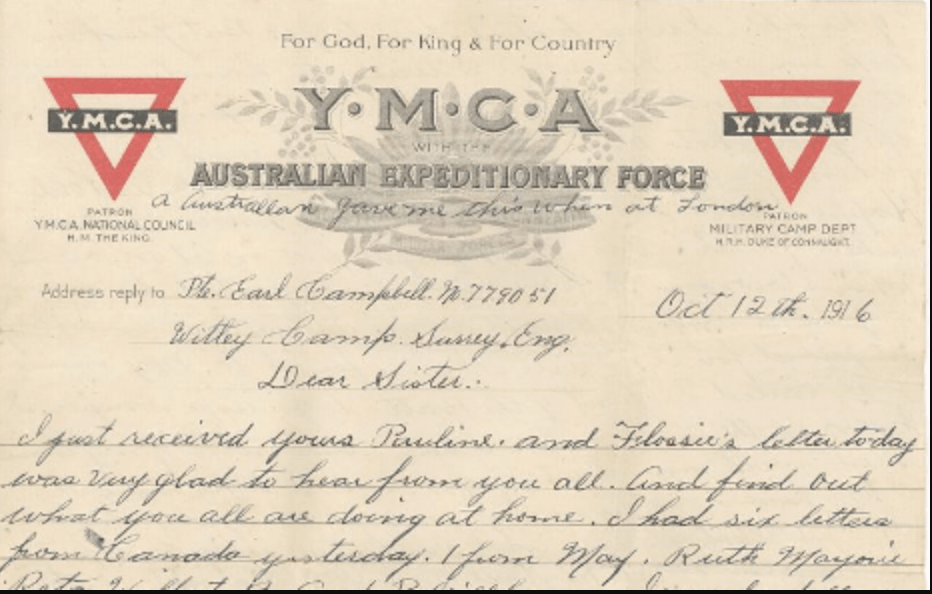 For God, For King & For Country
Y.M.C.A.
Y·M·C·A
Y.M.C.A.
WITH THE
AUSTRALIAN EXPEDITIONARY FORCE
a Australian gave me this when at London
PATRON
Y.M.C.A. NATIONAL COUNCIL
H.M. THE KING.
PATRON
MILITARY CAMP DEPT
H.R.H. DUKE OF CONNAUGHT.
Address reply to Pte. Earl Campbell. No 779051
Oct 12th. 1916
Witley Camp. Surrey, Eng.
Dear Sister.:
I just received yours Pauline. and Flossie's letter today
was very glad to hear from you all. And find out
what you all are doing at home. I had six letters
from Canada yesterday. 1 from May. Ruth